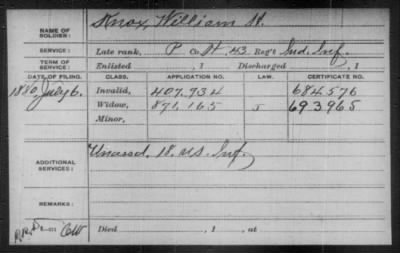 NAME OF SOLDIER: Knox, William H.
SERVICE: Late rank, P Co. H, 43 Reg't Ind. Inf.
TERM OF SERVICE: Enlisted , 1 Discharged , 1
DATE OF FILING. CLASS. APPLICATION NO. LAW. CERTIFICATE NO.
1880, July 6. Invalid, 407.934 684.576
Widow, 871,165 693965
Minor,
ADDITIONAL SERVICES: Unassd. 18. US. Inf.
REMARKS:
Died , 1 , at